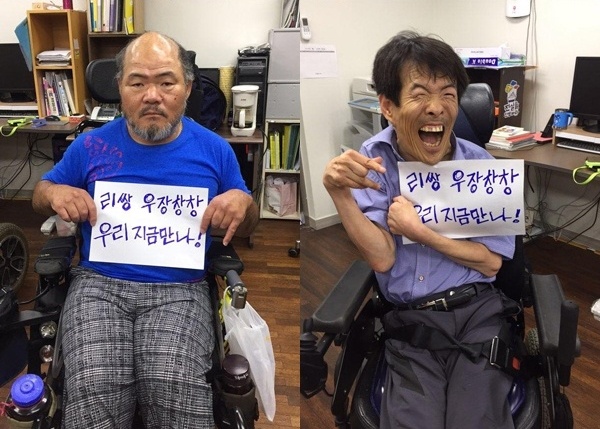 리쌍 우장창창
우리 지금만나!
리쌍 우장창창
우리 지금만나!
Double A